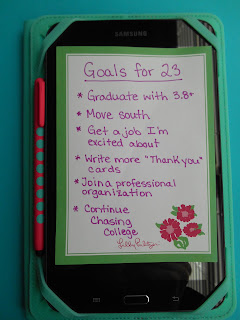 SAMSUNG
Goals for 23
* Graduate with 3.8+
* Move south
* Get a job I'm
excited about
* Write more "Thank you"
cards
* Join a professional
organization
* Continue
Chasing
College
Lilly Pulitzer